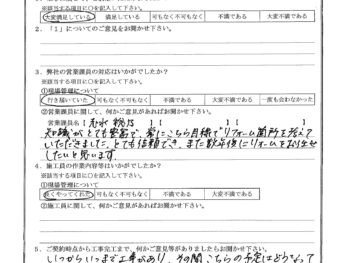 ※該当する項目に○を記入して下さい。
大変満足している 満足している 可もなく不可もなく 不満である 大変不満である
2．「1」についてのご意見をお聞かせ下さい。
3．弊社の営業課員の対応はいかがでしたか？
※該当する項目に○を記入して下さい。
①現場管理について
行き届いていた 可もなく不可もなく 不満である 大変不満である 一度も会わなかった
②営業課員に関して、何かご意見があればお聞かせ下さい。
営業課員名【 】【 】【 】
知識がとても豊富で、常にこちら目線でリフォーム箇所を考えて
いただきました。とても信頼でき、また数年後にリフォームをお任せ
したいと思います。
4．施工員の作業内容等はいかがでしたか？
※該当する項目に○を記入して下さい。
①現場管理について
良くやってくれた 可もなく不可もなく 不満である 大変不満である
②施工員に関して、何かご意見があればお聞かせ下さい。
5．ご契約時点から工事完工まで、何かご意見等がありましたらお聞かせ下さい。
いつからいつまで工事があり、その間こちらの予定はどうなって